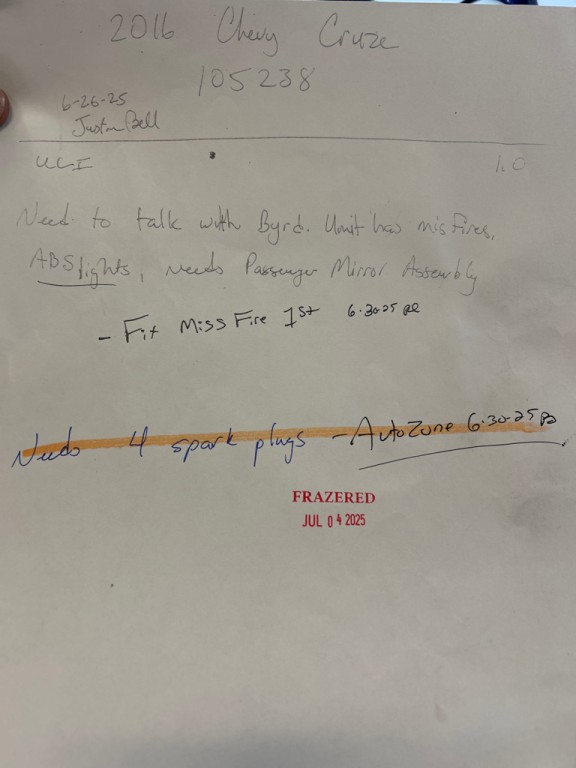 2016 Chevy Cruze
105238
6-26-25
Justin Bell
UCI 1.0
Need to talk with Byrd. Unit has misfires,
ABS lights, needs Passenger Mirror Assembly
- Fix Miss Fire 1st 6.30.25
Needs 4 spark plugs - AutoZone 6.30.25
FRAZERED
JUL 04 2025